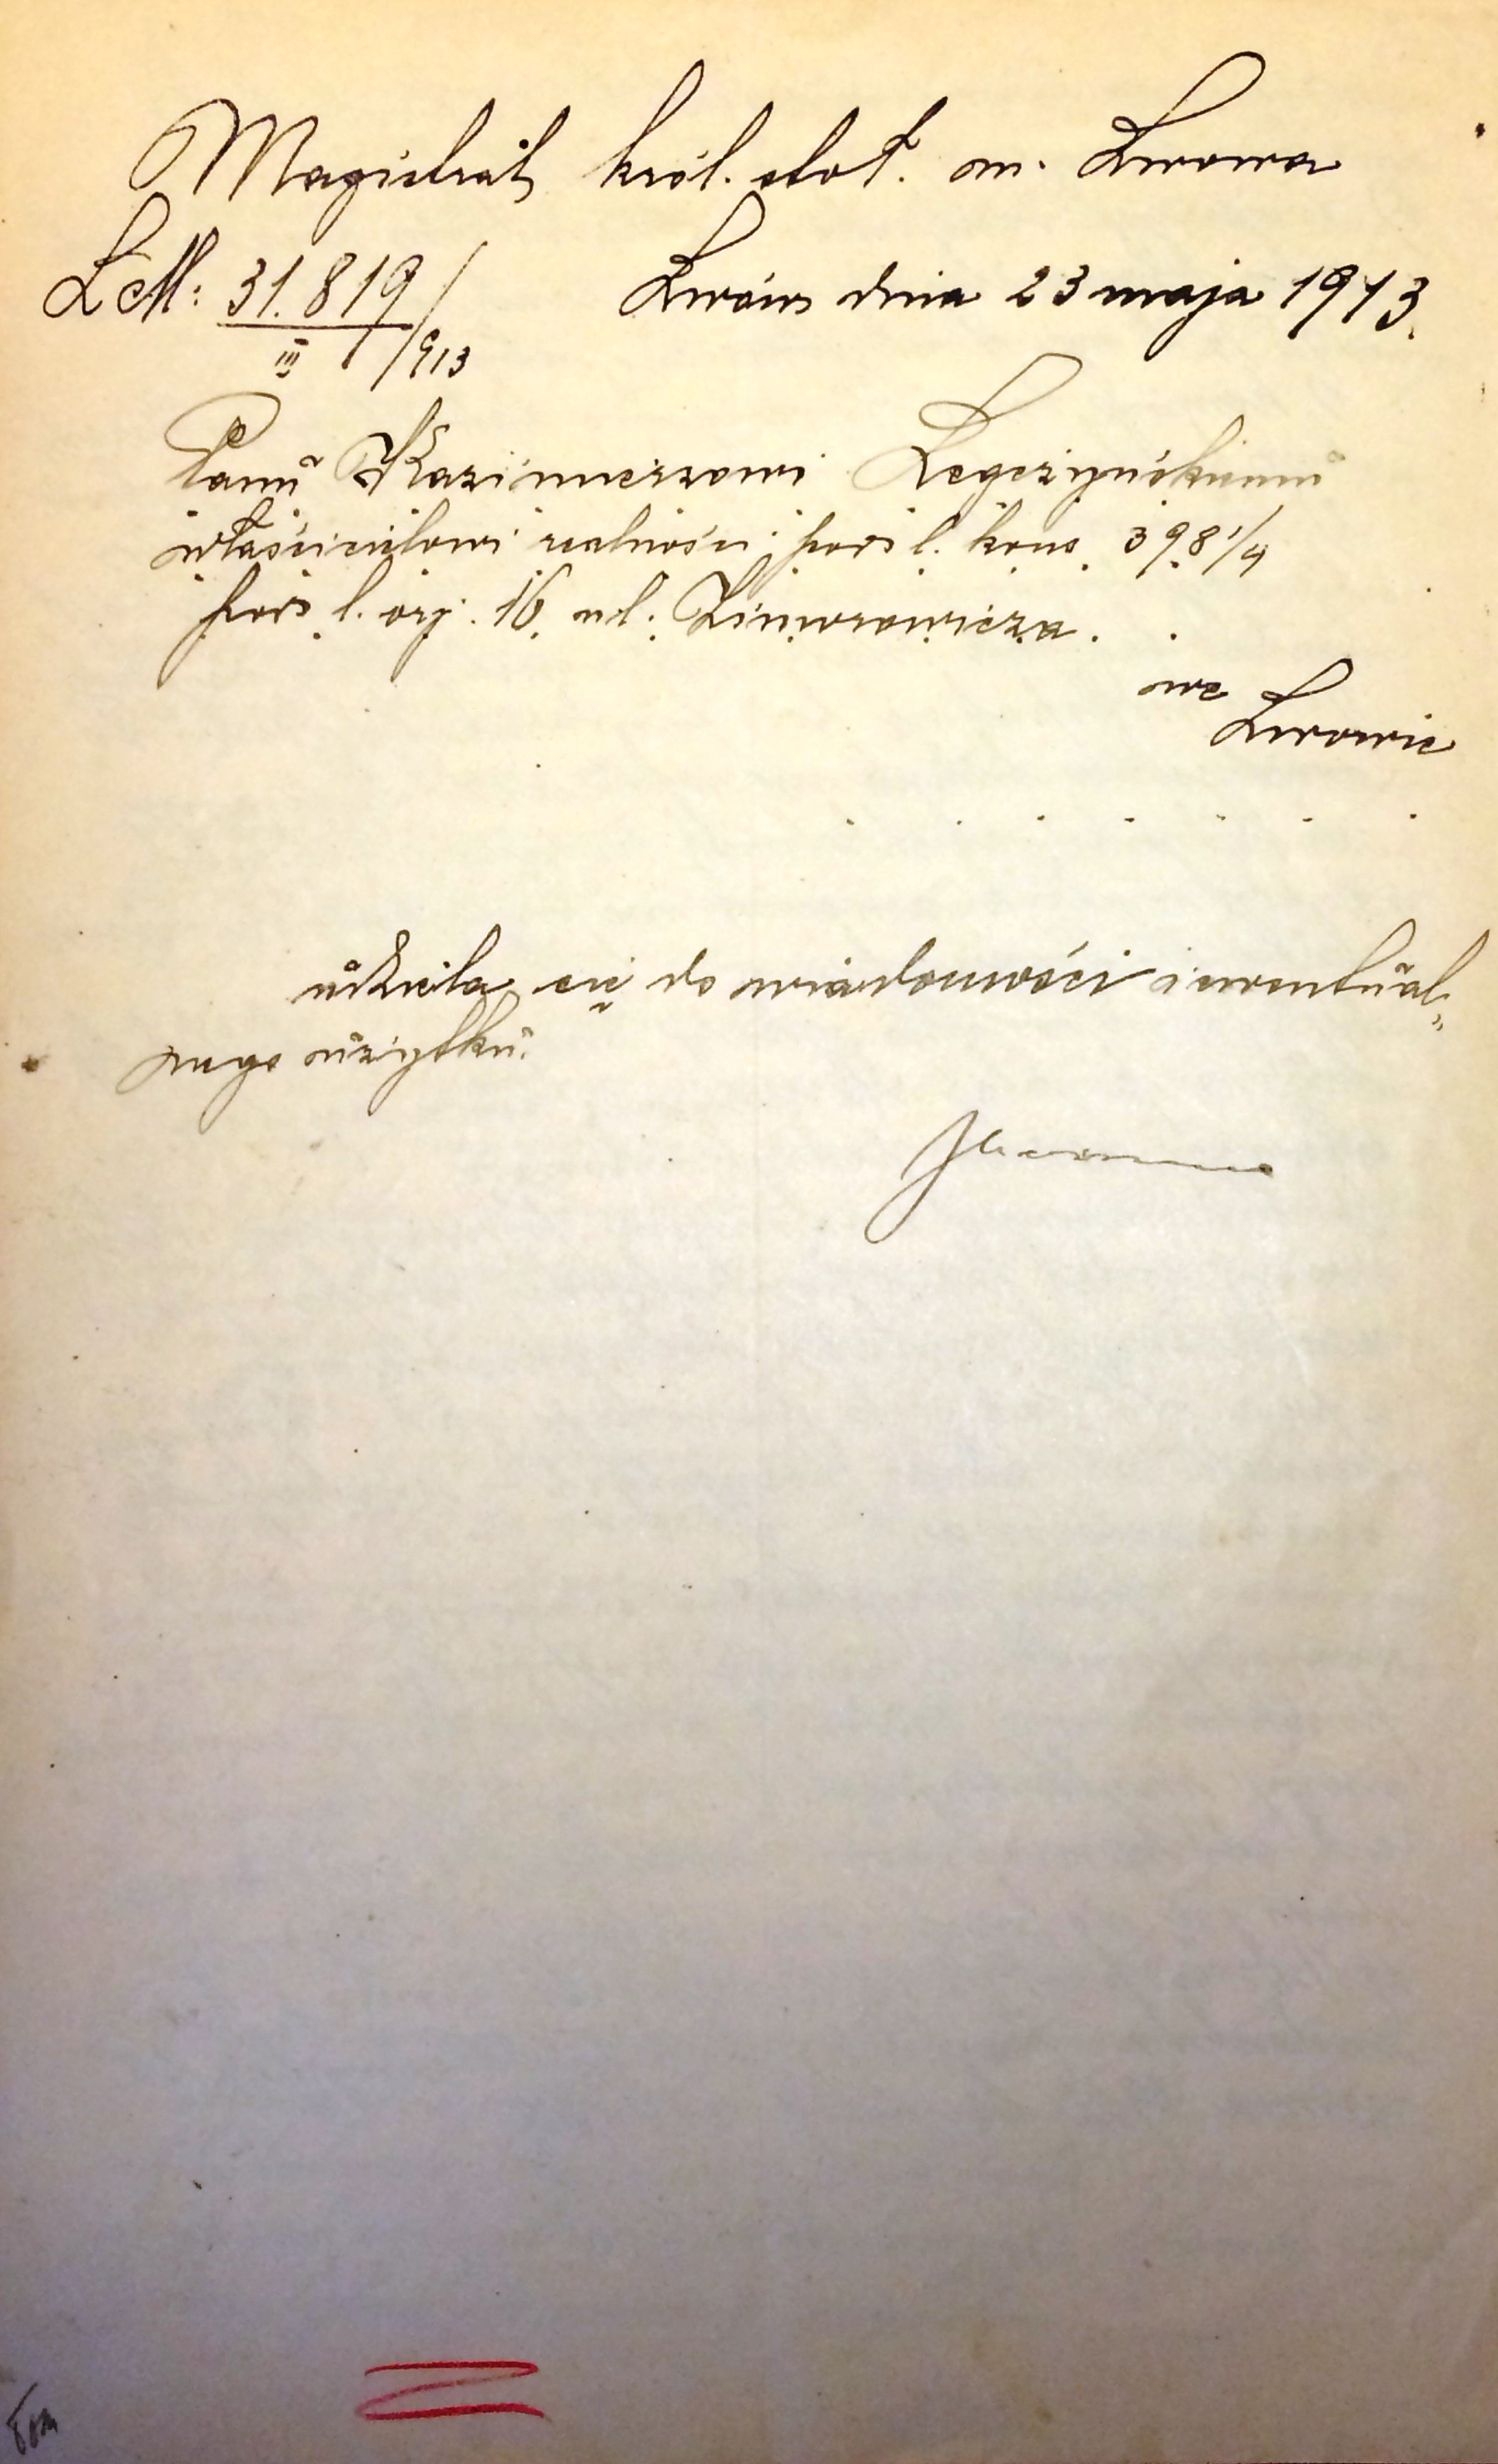 Magistrat król. stoł. m. Lwowa
L M: 31.819/III/913
Lwów dnia 23 maja 1913.
Panu Kazimierzowi
właścicielowi realności pod l. kons. 398 1/4
pod l. orj. 16 ul. Zimorowicza.
we
Lwowie
udziela się do wiadomości i ewentual„
nego użytku.